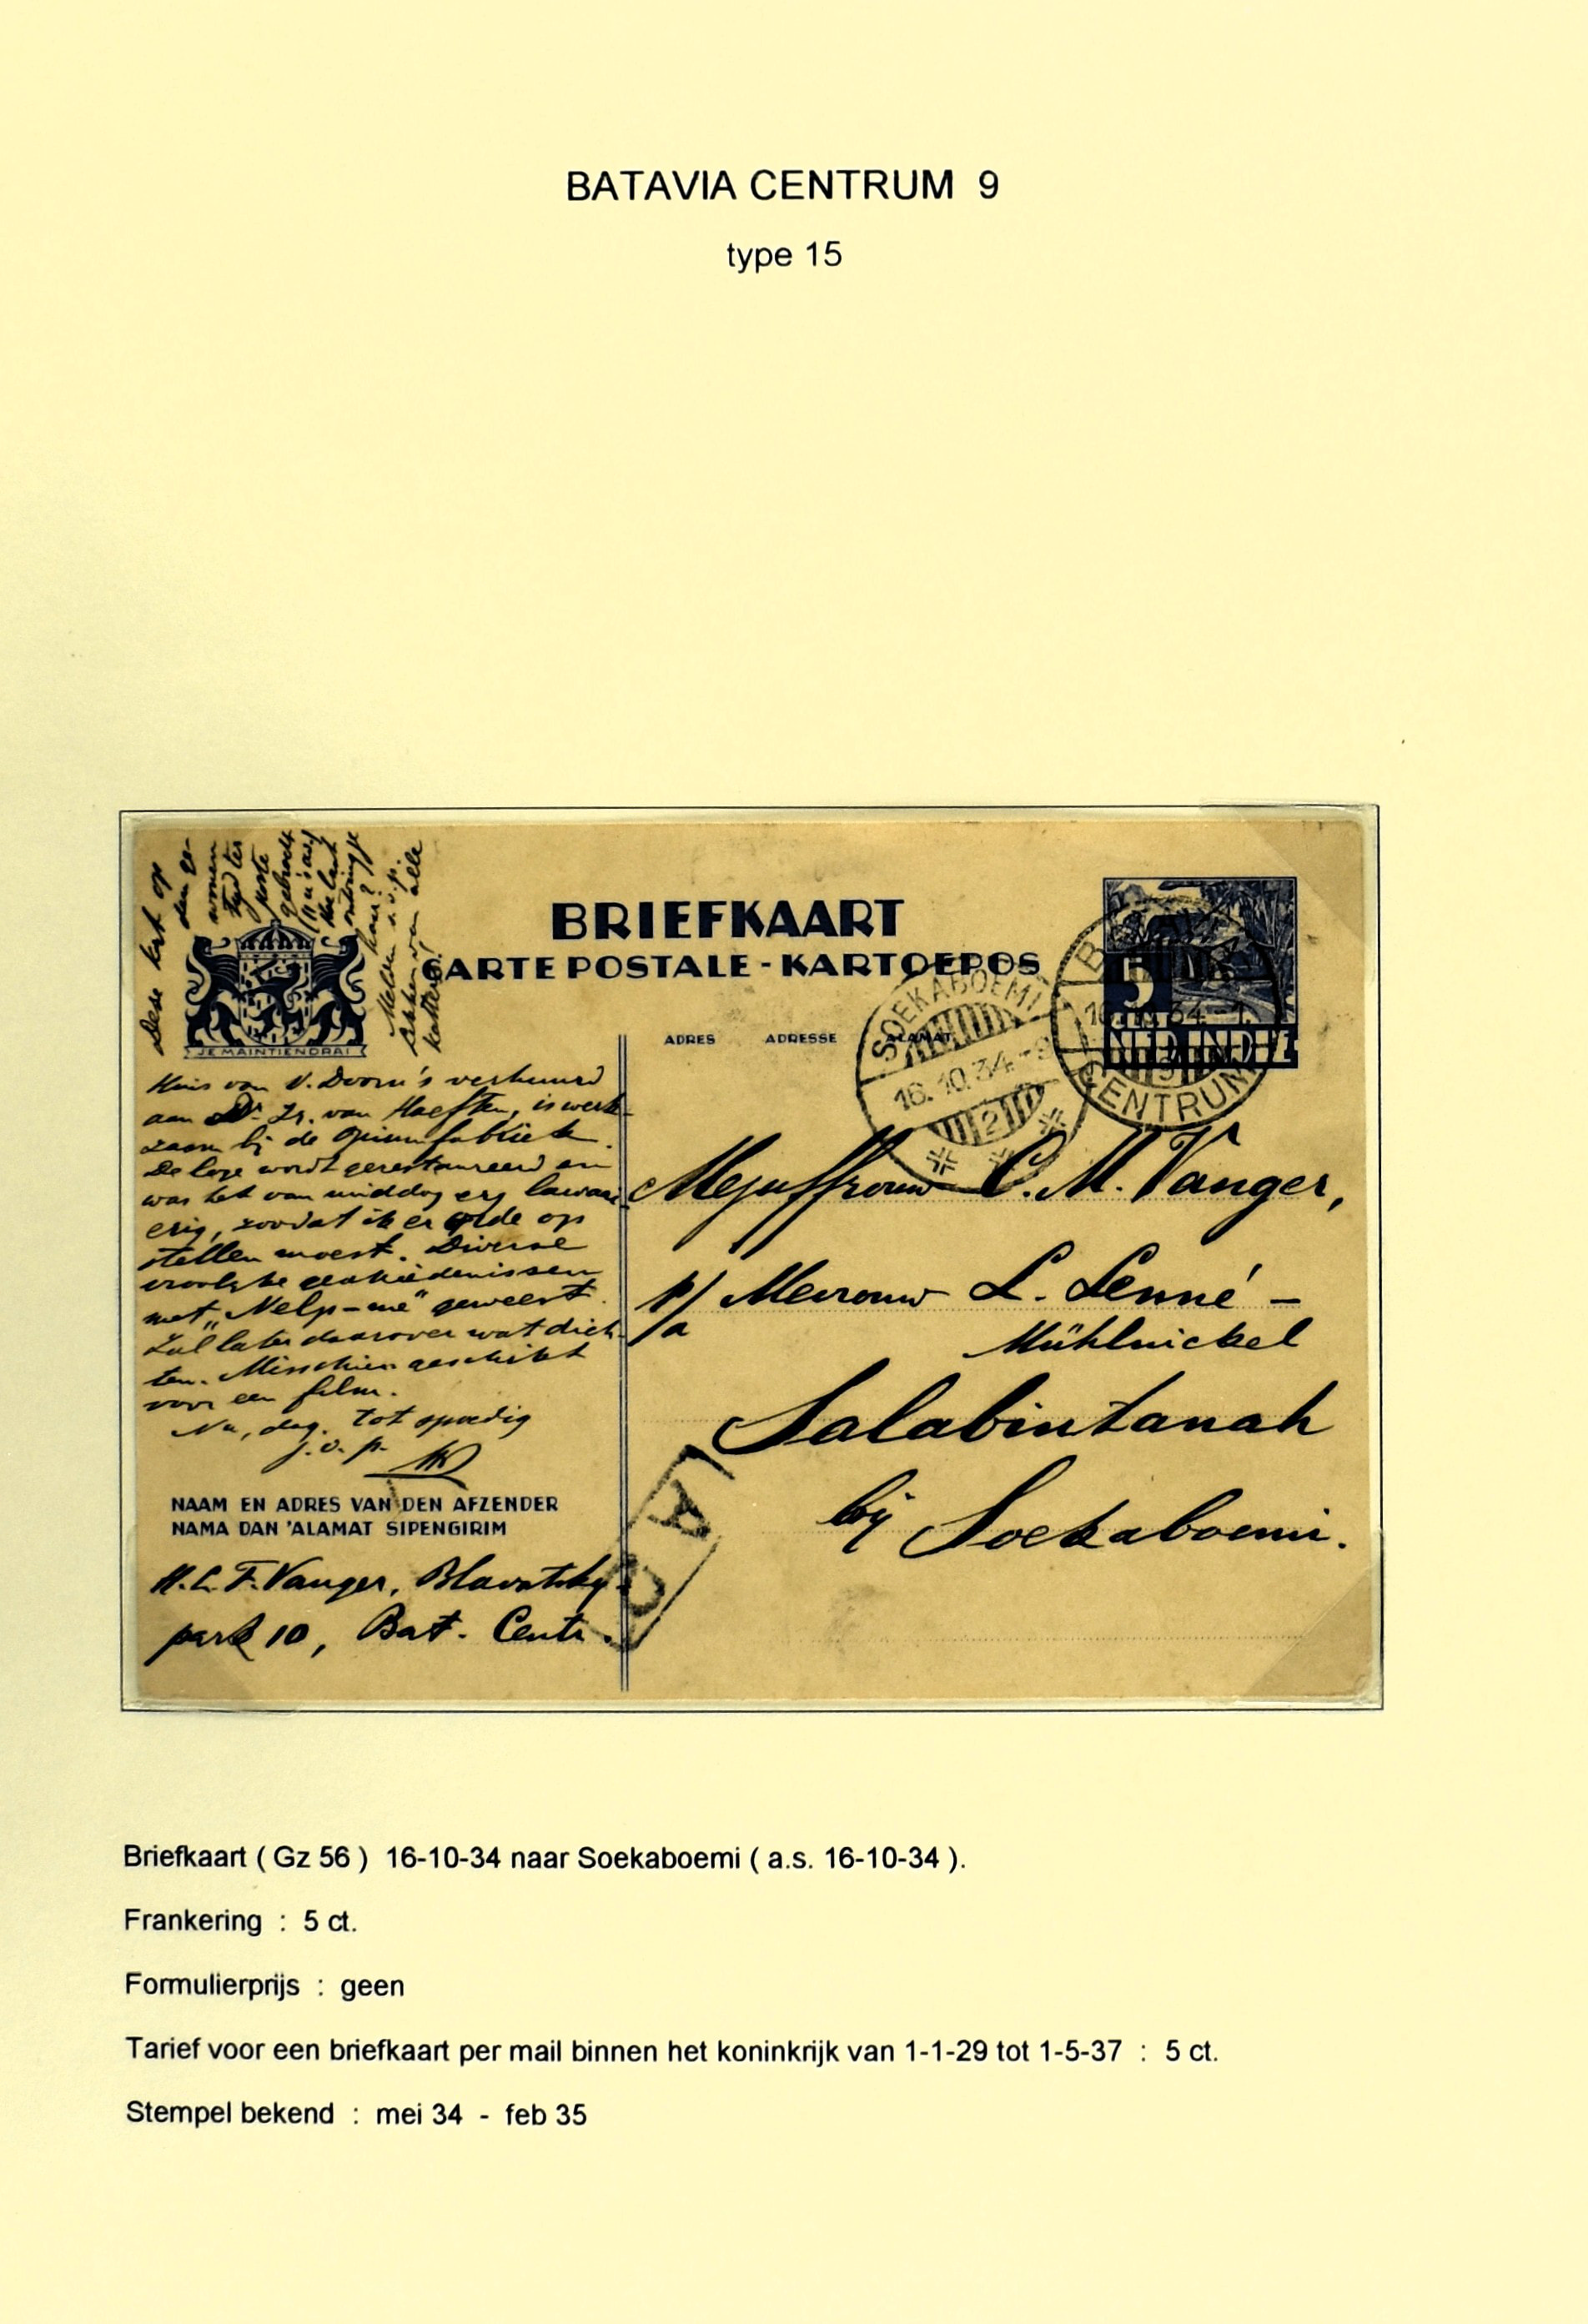 BATAVIA CENTRUM 9
type 15
Deze krt op
den ge-
wonen
tijd ter
poste
BRIEFKAART
CARTE POSTALE - KARTOEPOS
ADRES ADRESSE ALAMAT
JE MAINTIENDRAI
SOEKABOEMI
16.10.34.-9
2
CENTRUM
5
NED-INDIË
Huis van V. Doorn's verhuurd
aan Dr. Ir. van Haeften, is werk-
zaam bij de Opiumfabriek.
De loge wordt gerestaureerd en
was het van middag erg lawaai-
erig, zoodat ik er orde op
stellen moest. Diverse
vroolyke geschiedenissen
met „Help-me" geweest.
Zal later daarover wat dich-
ten. Misschien geschikt
voor een film.
Nu, dag. Tot spoedig
j.v.p.
NAAM EN ADRES VAN DEN AFZENDER
NAMA DAN 'ALAMAT SIPENGIRIM
H.L.F. Vanger, Blavatsky-
park 10, Bat. Centr.
Mejuffrouw C. M. Vanger,
p/a Mevrouw L. Lenné -
Mühlnickel
Salabintanah
bij Soekaboemi.
Briefkaart ( Gz 56 ) 16-10-34 naar Soekaboemi ( a.s. 16-10-34 ).
Frankering : 5 ct.
Formulierprijs : geen
Tarief voor een briefkaart per mail binnen het koninkrijk van 1-1-29 tot 1-5-37 : 5 ct.
Stempel bekend : mei 34 - feb 35